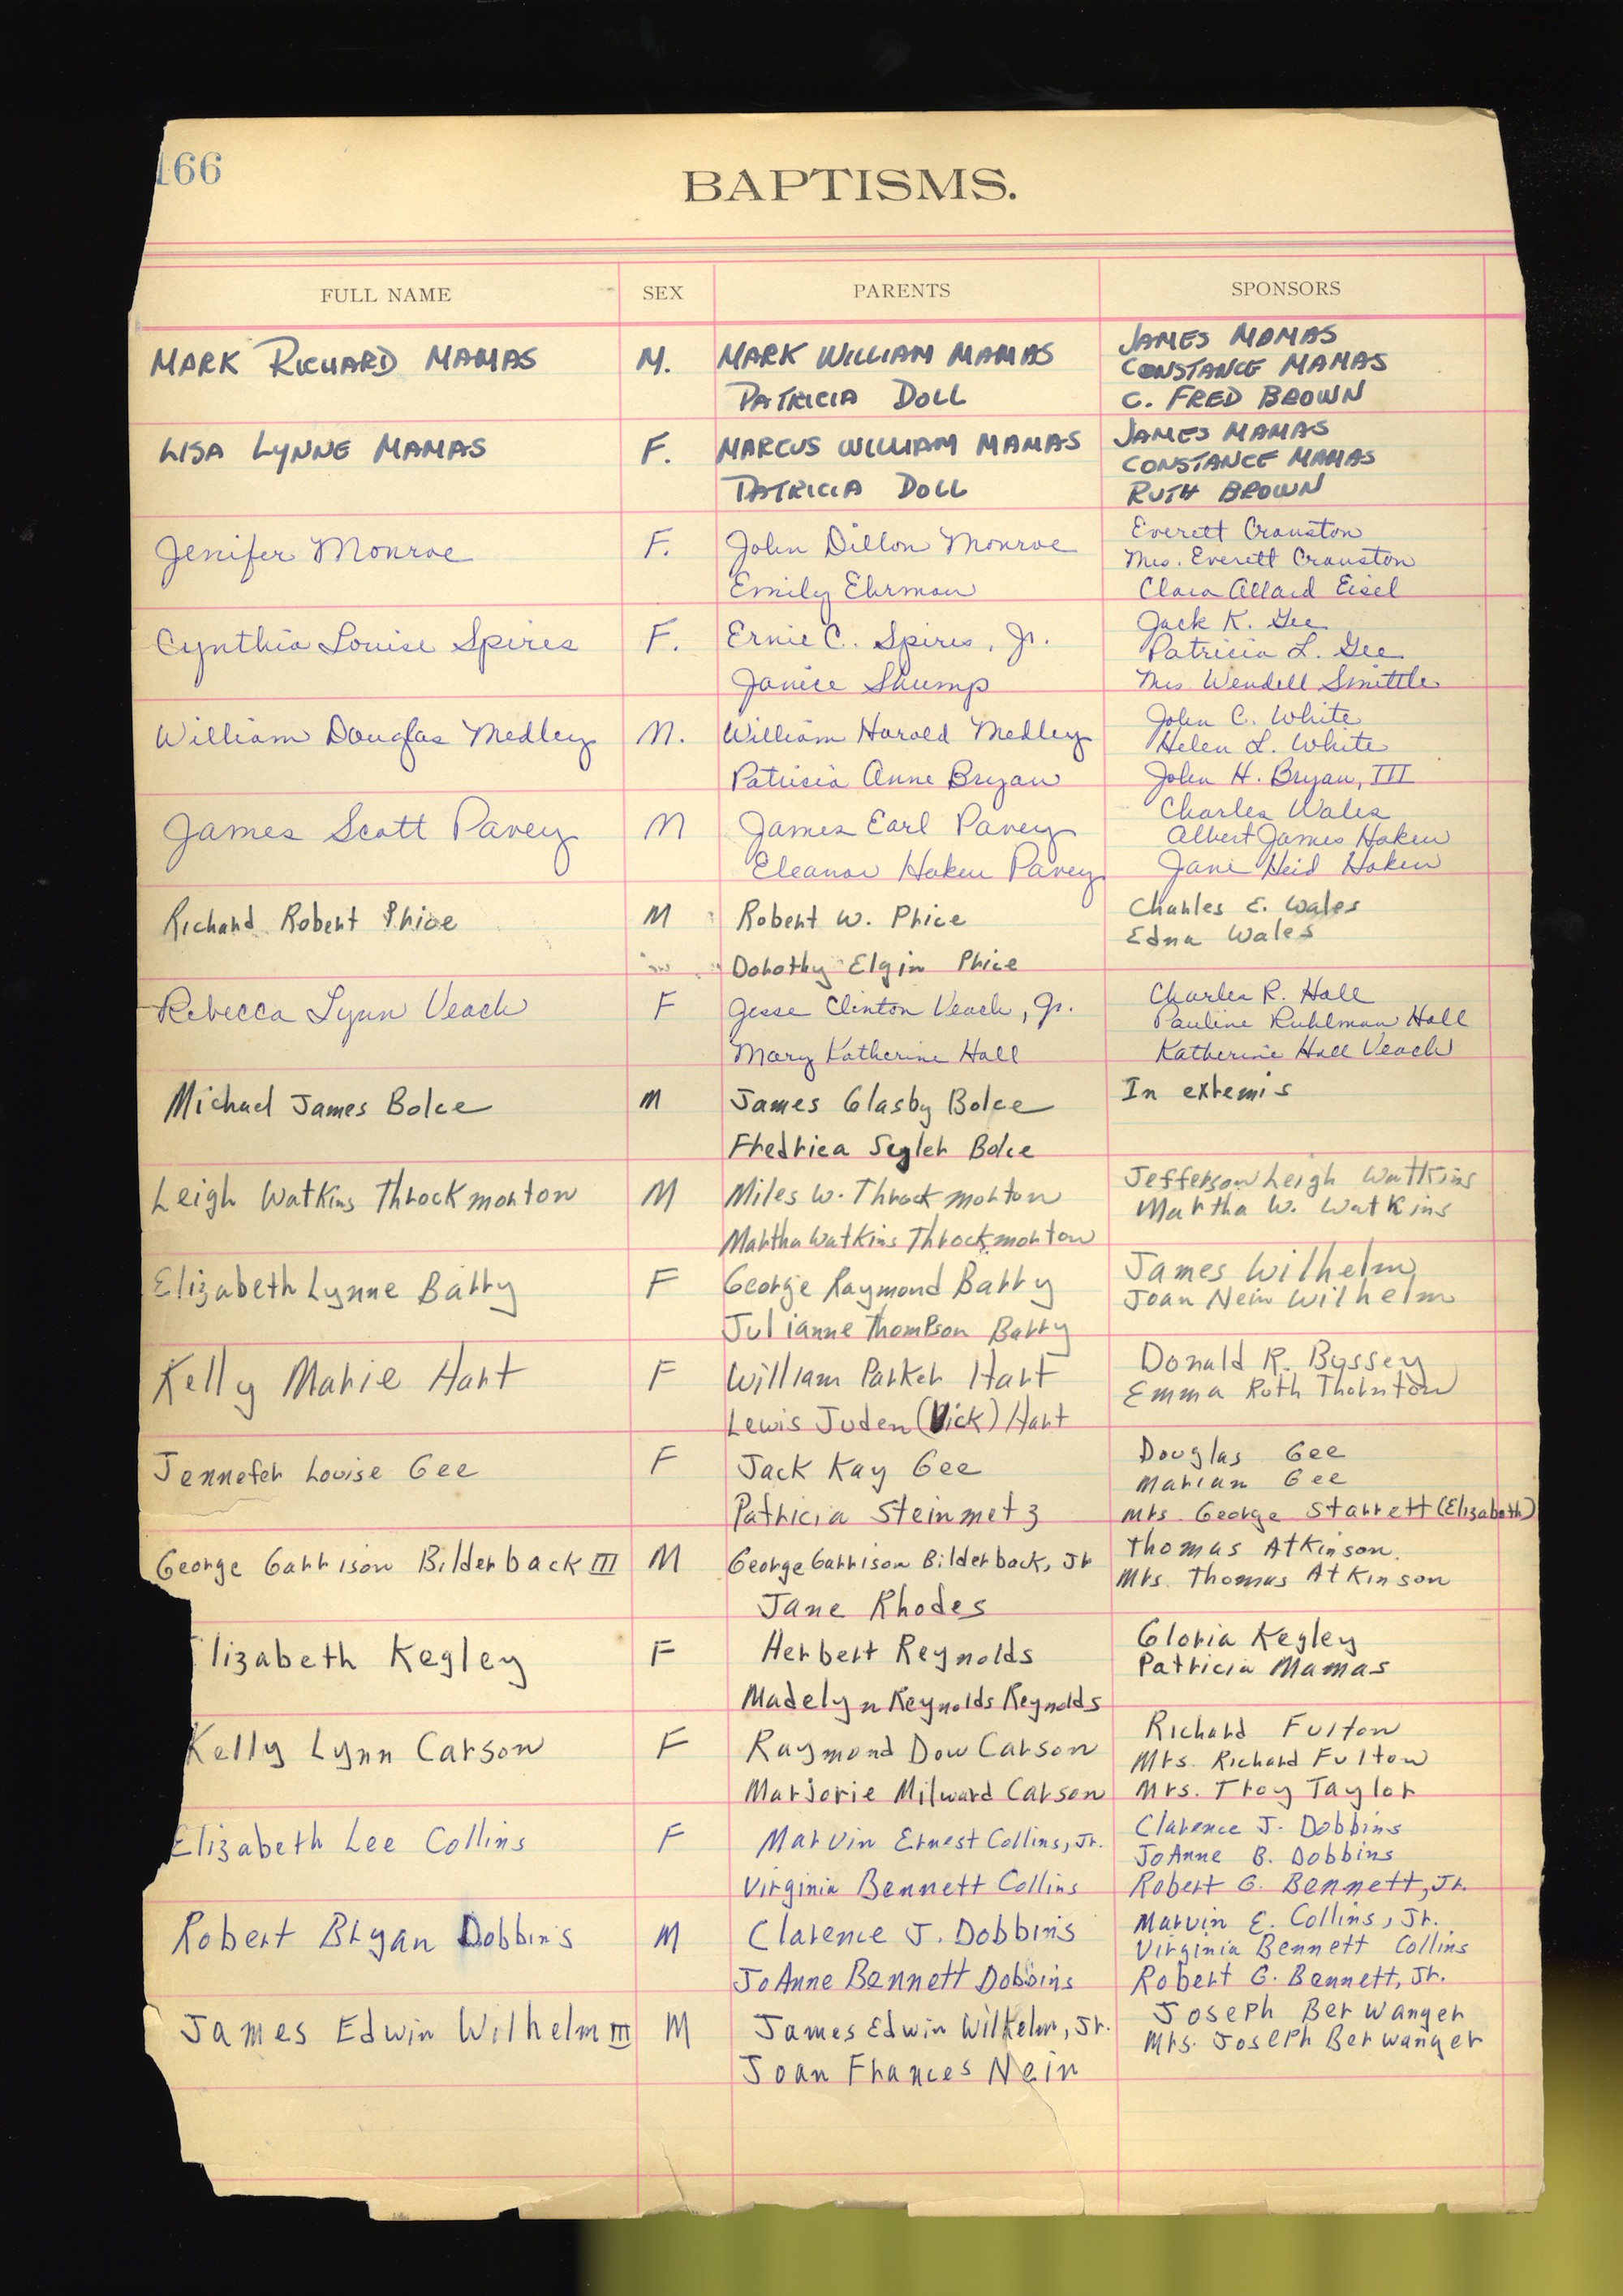 166
BAPTISMS.
FULL NAME SEX PARENTS SPONSORS
MARK RICHARD MAMAS M. MARK WILLIAM MAMAS JAMES MAMAS
CONSTANCE MAMAS
PATRICIA DOLL C. FRED BROWN
LISA LYNNE MAMAS F. MARCUS WILLIAM MAMAS JAMES MAMAS
CONSTANCE MAMAS
PATRICIA DOLL RUTH BROWN
Jenifer Monroe F. John Dillon Monroe Everett Cranston
Mrs. Everett Cranston
Emily Ehrman Clara Allard Eisel
Cynthia Louise Spires F. Ernie C. Spires, Jr. Jack K. Gee
Patricia L. Gee
Janice Shump Mrs Wendell Smittle
William Douglas Medley M. William Harold Medley John C. White
Helen L. White
Patricia Anne Bryan John H. Bryan, III
James Scott Pavey M James Earl Pavey Charles Wales
Albert James Haken
Eleanor Haken Pavey Jane Heid Haken
Richard Robert Price M Robert W. Price Charles E. Wales
Edna Wales
Dorothy Elgin Price
Rebecca Lynn Veach F Jesse Clinton Veach, Jr. Charles R. Hall
Pauline Ruhlman Hall
Mary Katherine Hall Katherine Hall Veach
Michael James Bolce M James Glasby Bolce In extremis
Fredrica Segler Bolce
Leigh Watkins Throckmorton M Miles W. Throckmorton Jefferson Leigh Watkins
Martha W. Watkins
Martha Watkins Throckmorton
Elizabeth Lynne Barry F George Raymond Barry James Wilhelm
Joan Nein Wilhelm
Julianne Thompson Barry
Kelly Marie Hart F William Parker Hart Donald R. Byssey
Emma Ruth Thornton
Lewis Juden (Vick) Hart
Jennefer Louise Gee F Jack Kay Gee Douglas Gee
Marian Gee
Patricia Steinmetz Mrs. George Starrett (Elizabeth)
George Garrison Bilderback III M George Garrison Bilderback, Jr Thomas Atkinson.
Mrs. Thomas Atkinson
Jane Rhodes
Elizabeth Kegley F Herbert Reynolds Gloria Kegley
Patricia Mamas
Madelyn Reynolds Reynolds
Kelly Lynn Carson F Raymond Dow Carson Richard Fulton
Mrs. Richard Fulton
Marjorie Milward Carson Mrs. Troy Taylor
Elizabeth Lee Collins F Marvin Ernest Collins, Jr. Clarence J. Dobbins
JoAnne B. Dobbins
Virginia Bennett Collins Robert G. Bennett, Jr.
Robert Bryan Dobbins M Clarence J. Dobbins Marvin E. Collins, Jr.
Virginia Bennett Collins
JoAnne Bennett Dobbins Robert G. Bennett, Jr.
James Edwin Wilhelm III M James Edwin Wilhelm, Jr. Joseph Berwanger
Mrs. Joseph Berwanger
Joan Frances Nein